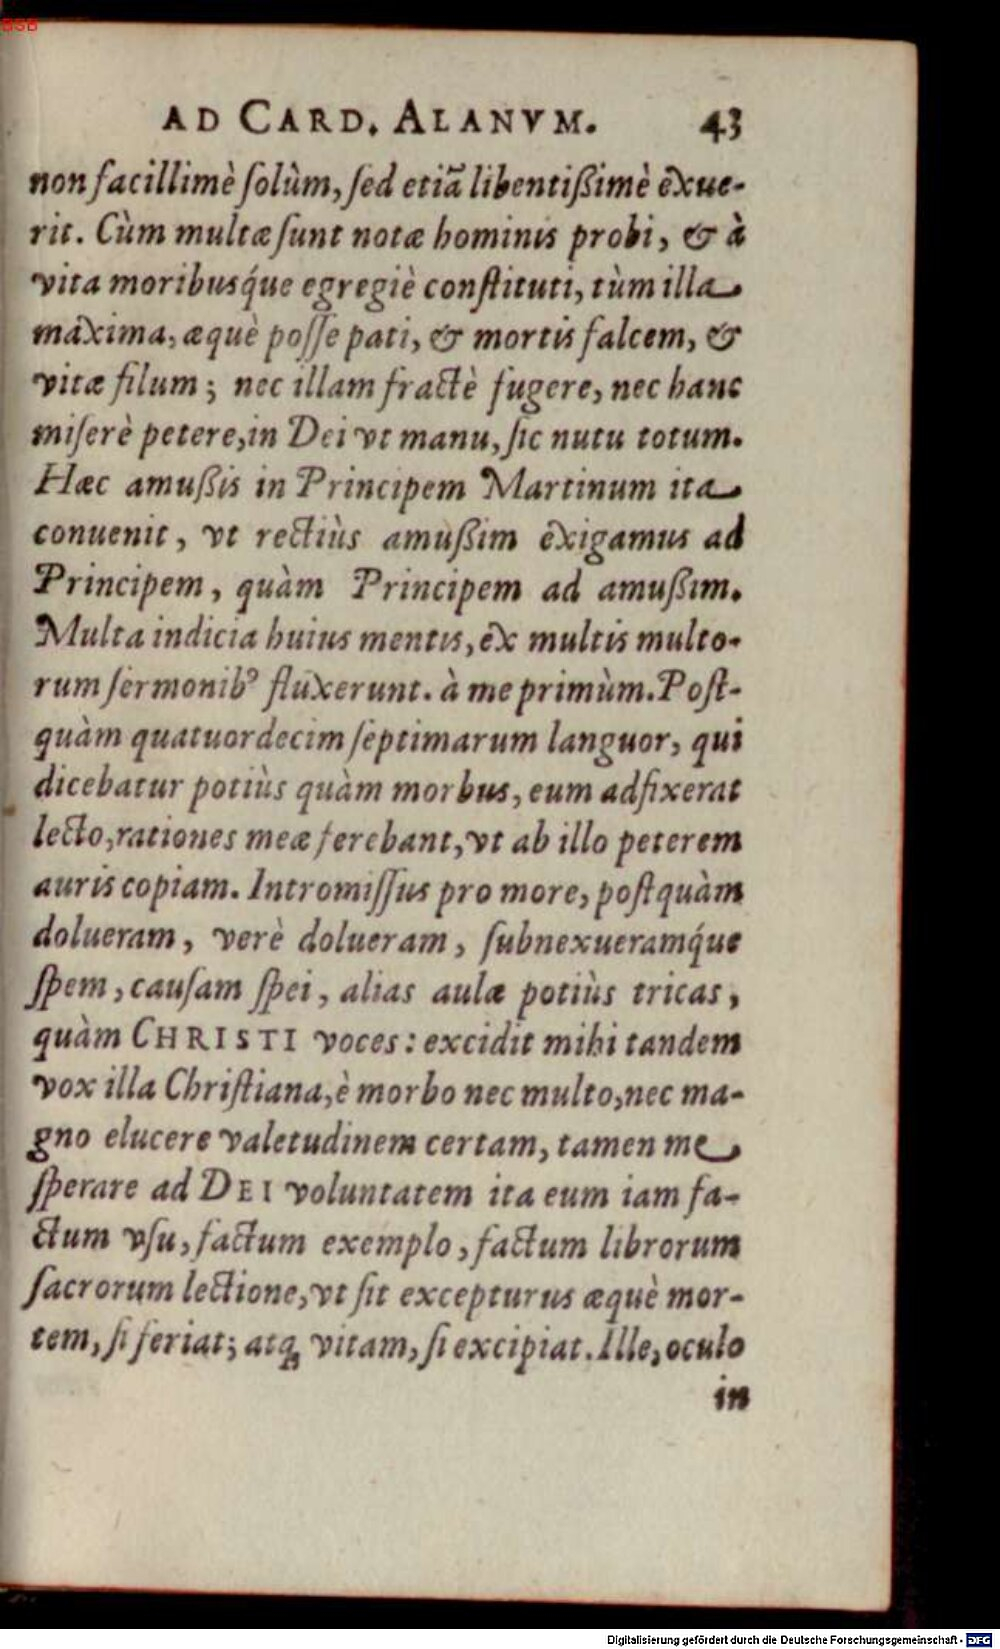 BSB
AD CARD. ALANVM. 43
non facillimè solùm, sed etiã libentißimè exue-
rit. Cùm multæ sunt notæ hominis probi, & à
vita moribusq́ue egregiè constituti, tùm illa
maxima, æquè posse pati, & mortis falcem, &
vitæ filum; nec illam fractè fugere, nec hanc
miserè petere, in Dei vt manu, sic nutu totum.
Hæc amußis in Principem Martinum ita
conuenit, vt rectiùs amußim exigamus ad
Principem, quàm Principem ad amußim.
Multa indicia huius mentis, ex multis multo-
rum sermonibꝰ fluxerunt. à me primùm. Post-
quàm quatuordecim septimarum languor, qui
dicebatur potiùs quàm morbus, eum adfixerat
lecto, rationes meæ ferebant, vt ab illo peterem
auris copiam. Intromissus pro more, postquàm
dolueram, verè dolueram, subnexueramq́ue
spem, causam spei, alias aulæ potiùs tricas,
quàm CHRISTI voces: excidit mihi tandem
vox illa Christiana, è morbo nec multo, nec ma-
gno elucere valetudinem certam, tamen me
sperare ad DEI voluntatem ita eum iam fa-
ctum vsu, factum exemplo, factum librorum
sacrorum lectione, vt sit excepturus æquè mor-
tem, si feriat; atq; vitam, si excipiat. Ille, oculo
in
Digitalisierung gefördert durch die Deutsche Forschungsgemeinschaft - DFG